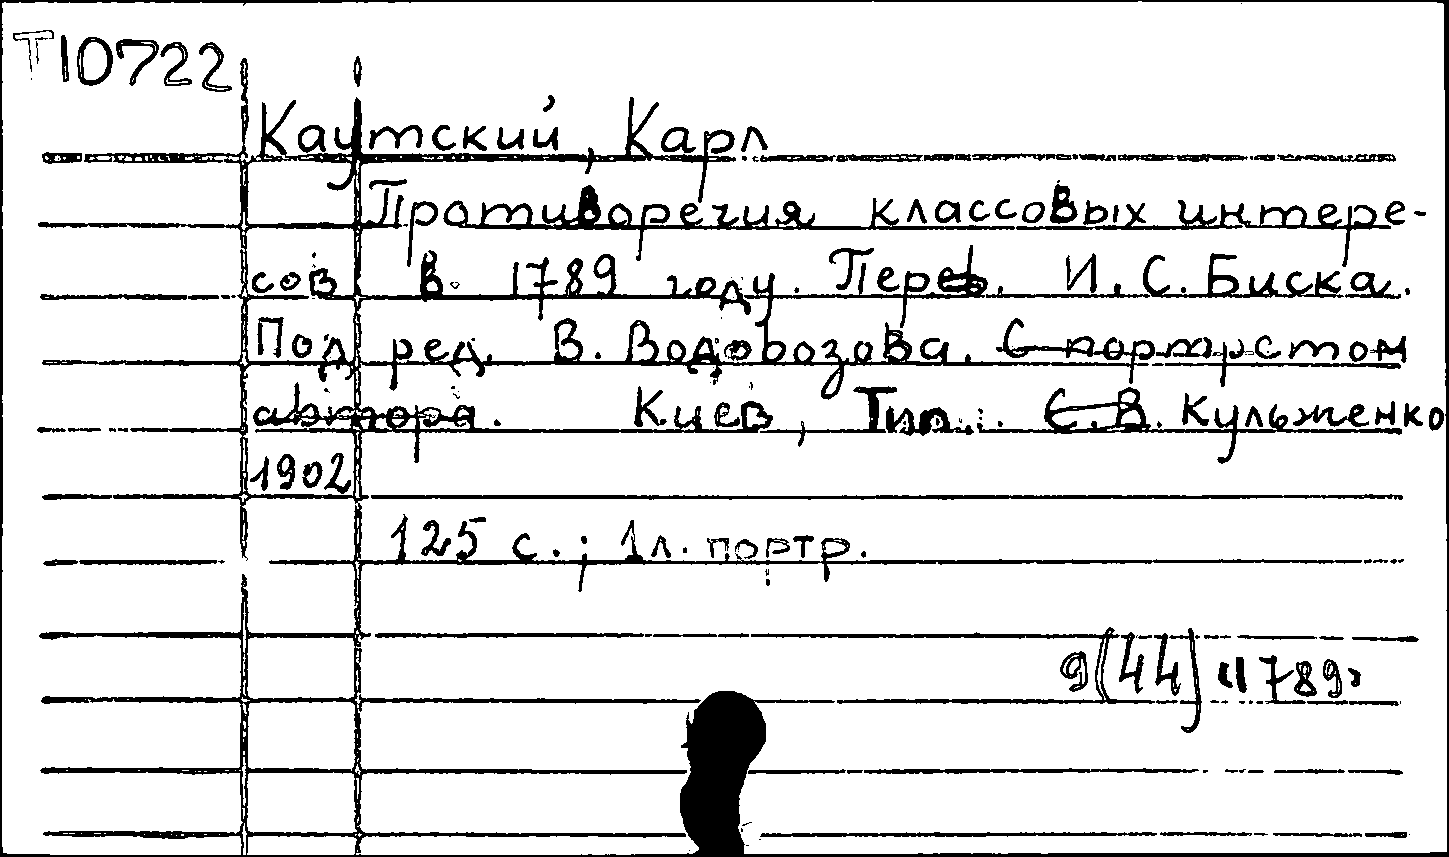 Т10722
Каутский, Карл
Противоречия классовых интере-
сов в 1789 году. Перев. И. С. Биска.
Под ред. В. Водовозова. С портретом
автора. Киев, Тип. С. В. Кульженко
1902
125 с.; 1 л. портр.
9(44) "1789"